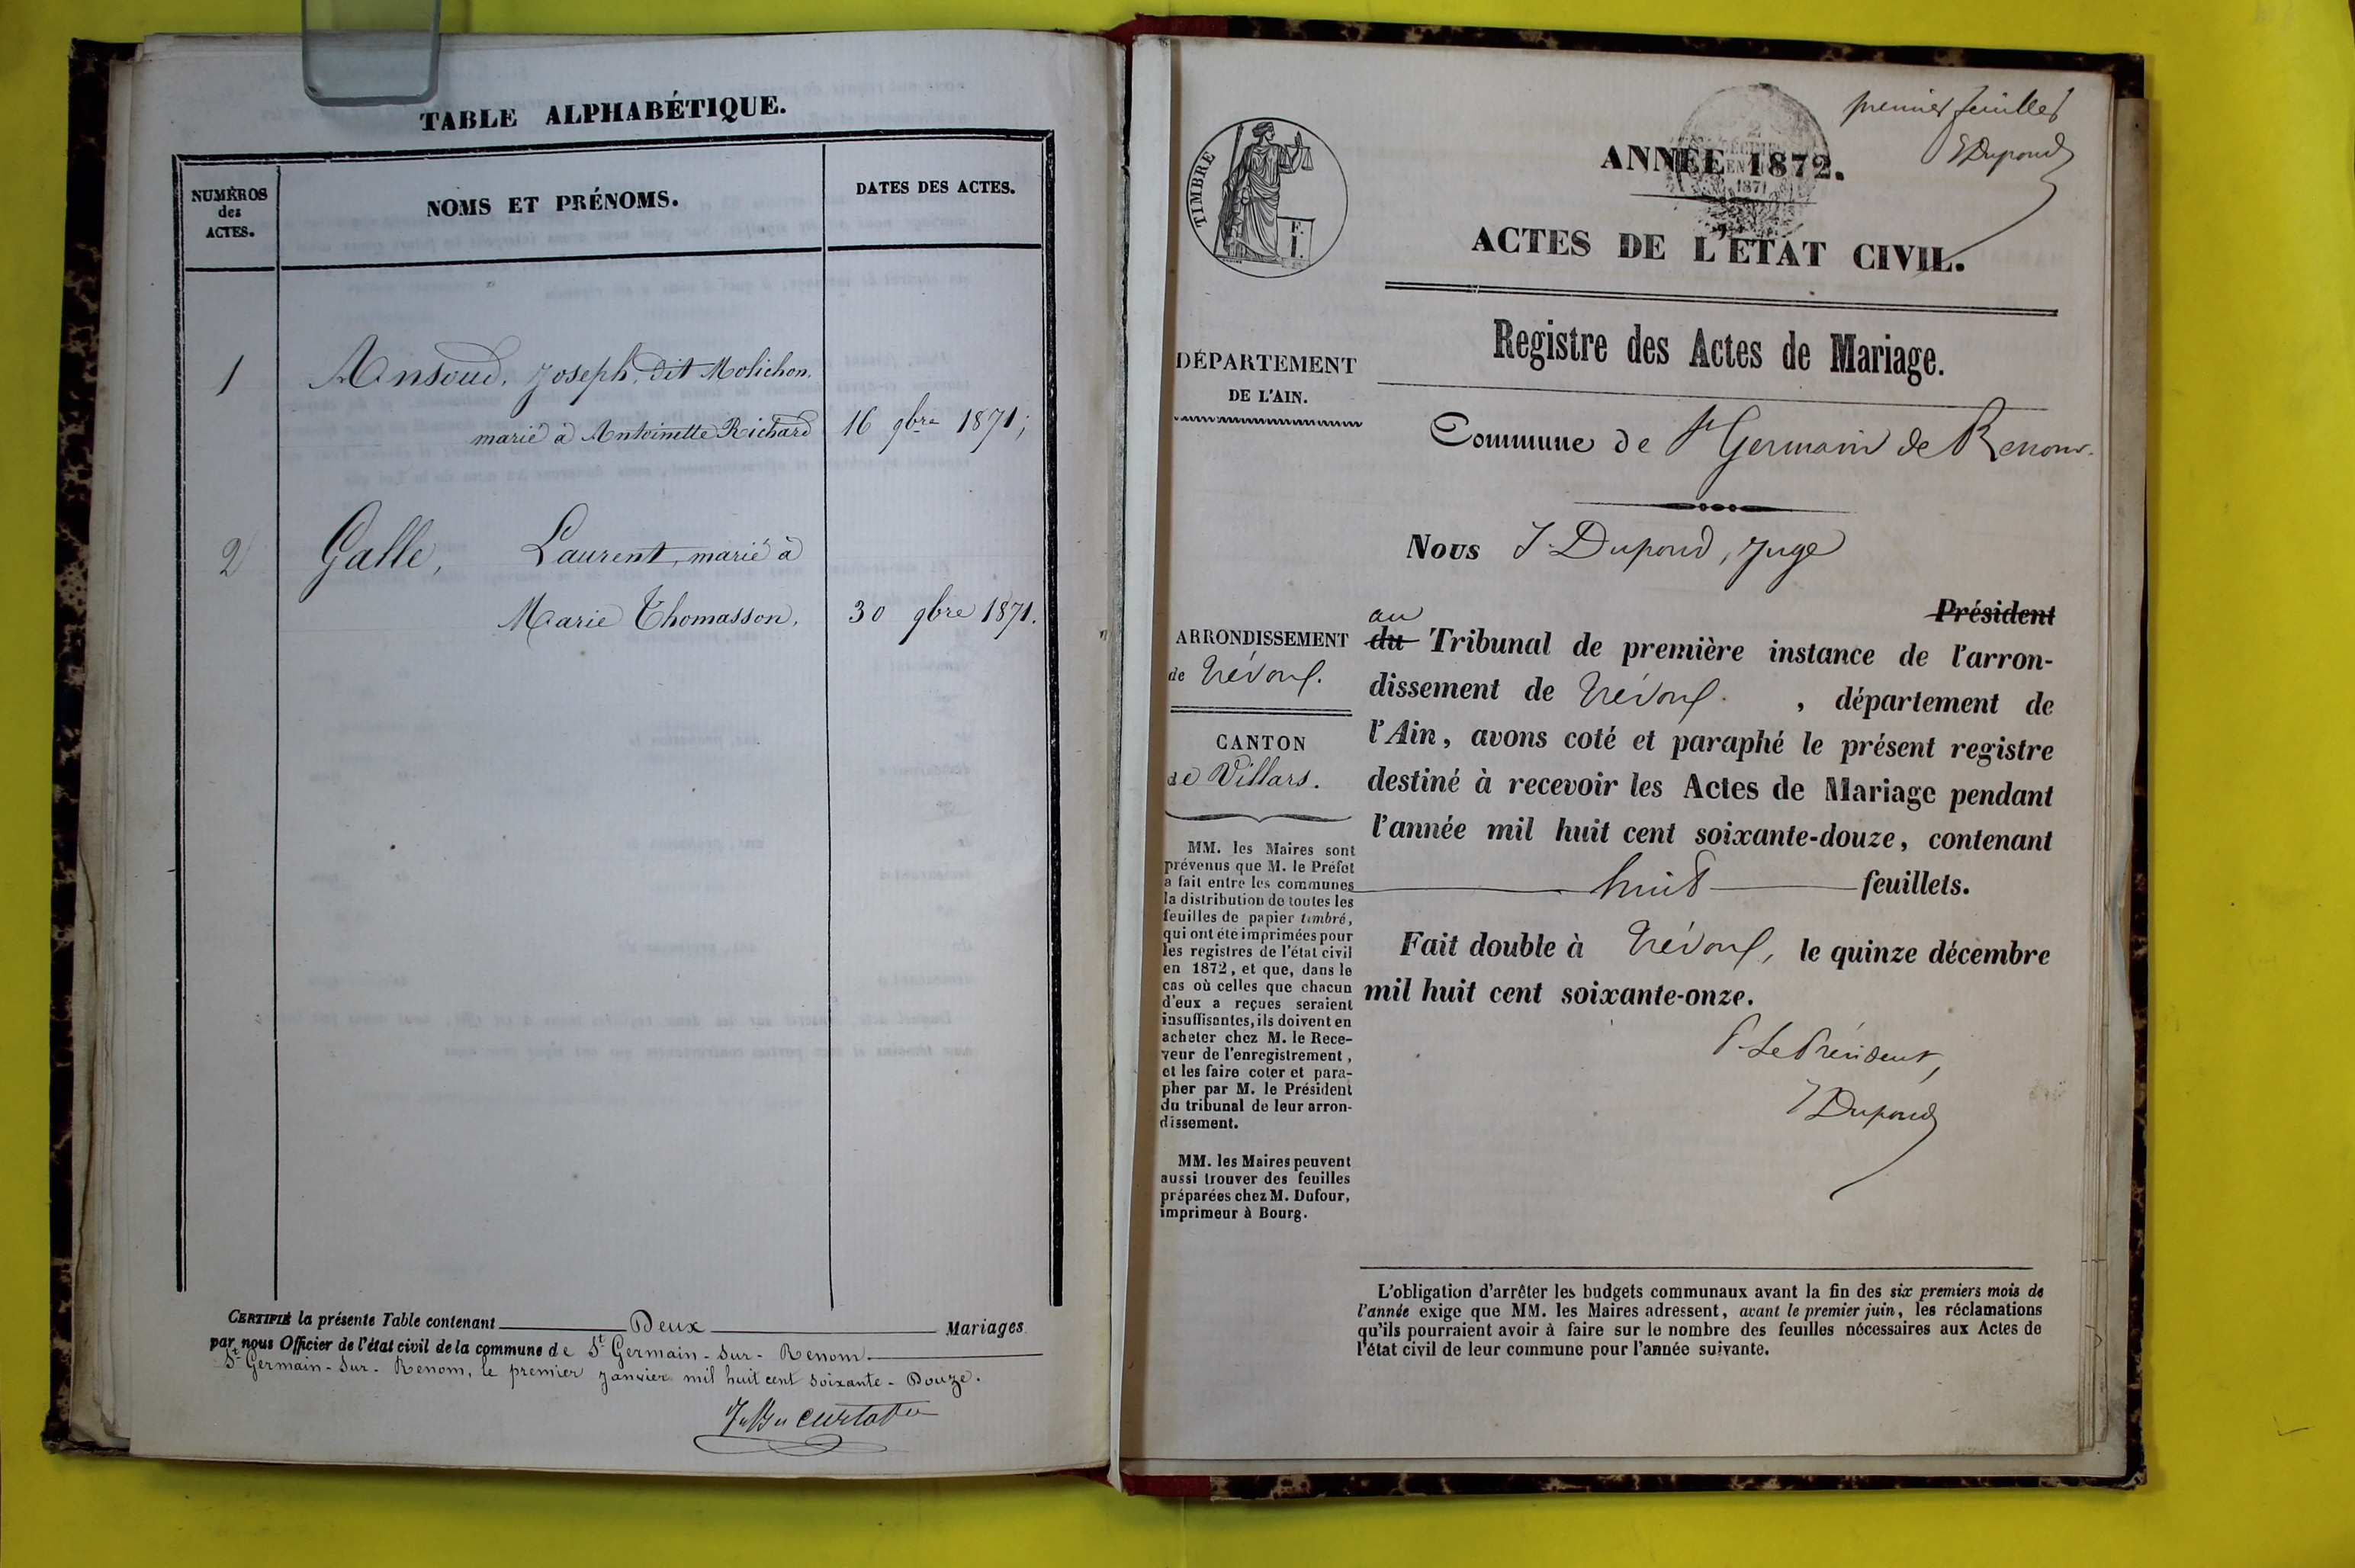 TABLE ALPHABÉTIQUE.
NUMÉROS
des
ACTES.
NOMS ET PRÉNOMS.
DATES DES ACTES.
1 Ansoud, Joseph, dit Molichon.
marié à Antoinette Richard 16 9bre 1871;
2 Galle, Laurent, marié à
Marie Thomasson, 30 9bre 1871.
CERTIFIÉ la présente Table contenant Deux Mariages
par nous Officier de l'état civil de la commune de St Germain-sur-Renom.
St Germain-sur-Renom, le premier janvier mil huit cent soixante-Douze.
premier feuillet
JDupond
TIMBRE
F.
1.
ANNÉE 1872.
1871
ACTES DE L'ÉTAT CIVIL.
Registre des Actes de Mariage.
DÉPARTEMENT
DE L'AIN.
Commune de St Germain de Renom.
Nous J. Dupond, Juge
Président
au
du Tribunal de première instance de l'arron-
dissement de Trévoux. , département de
l'Ain, avons coté et paraphé le présent registre
destiné à recevoir les Actes de Mariage pendant
l'année mil huit cent soixante-douze, contenant
huit feuillets.
Fait double à Trévoux, le quinze décembre
mil huit cent soixante-onze.
P. Le Président,
JDupond
ARRONDISSEMENT
de Trévoux.
CANTON
de Villars.
MM. les Maires sont
prévenus que M. le Préfet
a fait entre les communes
la distribution de toutes les
feuilles de papier timbré,
qui ont été imprimées pour
les registres de l'état civil
en 1872, et que, dans le
cas où celles que chacun
d'eux a reçues seraient
insuffisantes, ils doivent en
acheter chez M. le Rece-
veur de l'enregistrement,
et les faire coter et para-
pher par M. le Président
du tribunal de leur arron-
dissement.
MM. les Maires peuvent
aussi trouver des feuilles
préparées chez M. Dufour,
imprimeur à Bourg.
L'obligation d'arrêter les budgets communaux avant la fin des six premiers mois de
l'année exige que MM. les Maires adressent, avant le premier juin, les réclamations
qu'ils pourraient avoir à faire sur le nombre des feuilles nécessaires aux Actes de
l'état civil de leur commune pour l'année suivante.